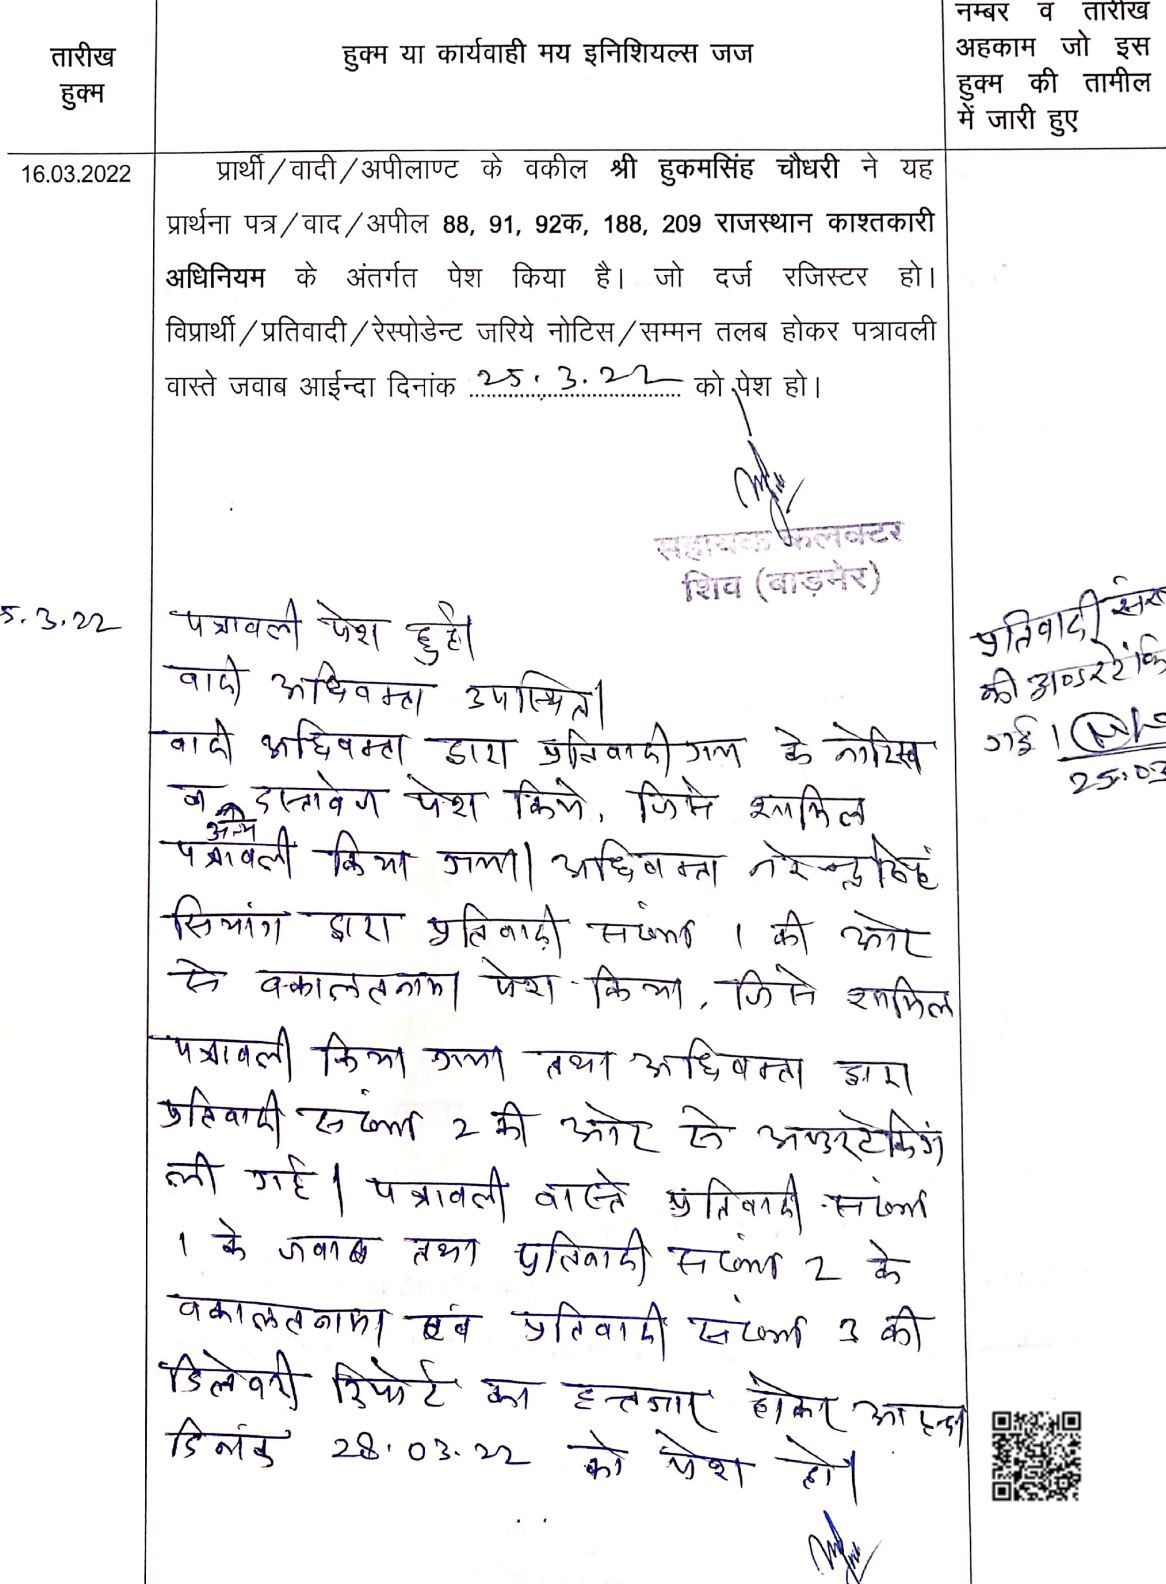 तारीख
हुक्म
हुक्म या कार्यवाही मय इनिशियल्स जज
नम्बर व तारीख
अहकाम जो इस
हुक्म की तामील
में जारी हुए
16.03.2022
प्रार्थी/वादी/अपीलाण्ट के वकील श्री हुकमसिंह चौधरी ने यह
प्रार्थना पत्र/वाद/अपील 88, 91, 92क, 188, 209 राजस्थान काश्तकारी
अधिनियम के अंतर्गत पेश किया है। जो दर्ज रजिस्टर हो।
विप्रार्थी/प्रतिवादी/रेस्पोडेन्ट जरिये नोटिस/सम्मन तलब होकर पत्रावली
वास्ते जवाब आईन्दा दिनांक 25.3.22 को पेश हो।
सहायक कलक्टर
शिव (बाड़मेर)
5.3.22
पत्रावली पेश हुई।
वादी अधिवक्ता उपस्थित।
वादी अधिवक्ता द्वारा प्रतिवादी गण के नोटिस
व अन्य दस्तावेज पेश किये, जिसे शामिल
पत्रावली किया गया। अधिवक्ता नरेन्द्रसिंह
सियांग द्वारा प्रतिवादी संख्या 1 की ओर
से वकालतनामा पेश किया, जिसे शामिल
पत्रावली किया गया तथा अधिवक्ता द्वारा
प्रतिवादी संख्या 2 की ओर से अण्डरटेकिंग
ली गई। पत्रावली वास्ते प्रतिवादी संख्या
1 के जवाब तथा प्रतिवादी संख्या 2 के
वकालतनामा एवं प्रतिवादी संख्या 3 की
डिलेवरी रिपोर्ट का इन्तजार होकर आइन्दा
दिनांक 28.03.22 को पेश हो।
प्रतिवादी
की
गई।
25.03